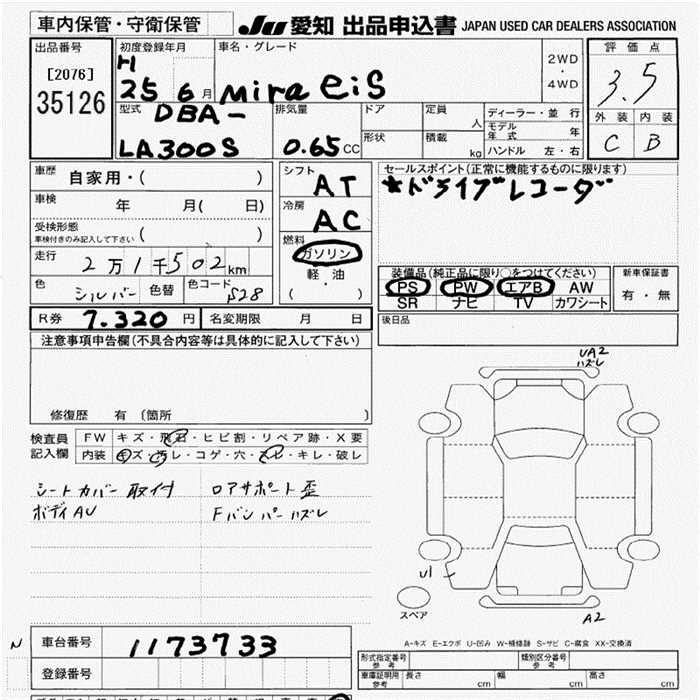 車内保管・守衛保管
JU 愛知 出品申込書 JAPAN USED CAR DEALERS ASSOCIATION
出品番号
[2076]
35126
初度登録年月
H 25 6月
車名・グレード
mira eis
2WD
・
4WD
評価点
3.5
外装 内装
C B
型式
DBA-
LA300S
排気量
0.65 CC
ドア
形状
定員
人
積載
kg
ディーラー・並行
モデル年式 年
ハンドル 左・右
車歴 自家用・( )
車検 年 月( 日)
受検形態
車検付きのみ記入して下さい ( )
走行 2万1千502km
色 シルバー 色替 色コード S28
シフト
AT
冷房
AC
燃料
ガソリン
軽・油
( )
セールスポイント(正常に機能するものに限ります)
★ドライブレコーダ
装備品(純正品に限り○をつけてください)
PS PW エアB AW
SR ナビ TV カワシート
新車保証書
有・無
R券 7.320 円 名変期限 月 日
後日品
注意事項申告欄(不具合内容等は具体的に記入して下さい)
修復歴 有 (箇所 )
検査員
記入欄
FW キズ・飛石・ヒビ割・リペア跡・X要
内装 キズ・汚レ・コゲ・穴・スレ・キレ・破レ
シートカバー取付 ロアサポート歪
ボディAU Fバンパーハズレ
UA2
ハズレ
U1
スペア
A2
A-キズ E-エクボ U-凹み W-補修跡 S-サビ C-腐食 XX-交換済
N
車台番号 1173733
登録番号
型式指定番号
参考
類別区分番号
参考
車庫証明用
参考
長さ cm 幅 cm 高さ cm